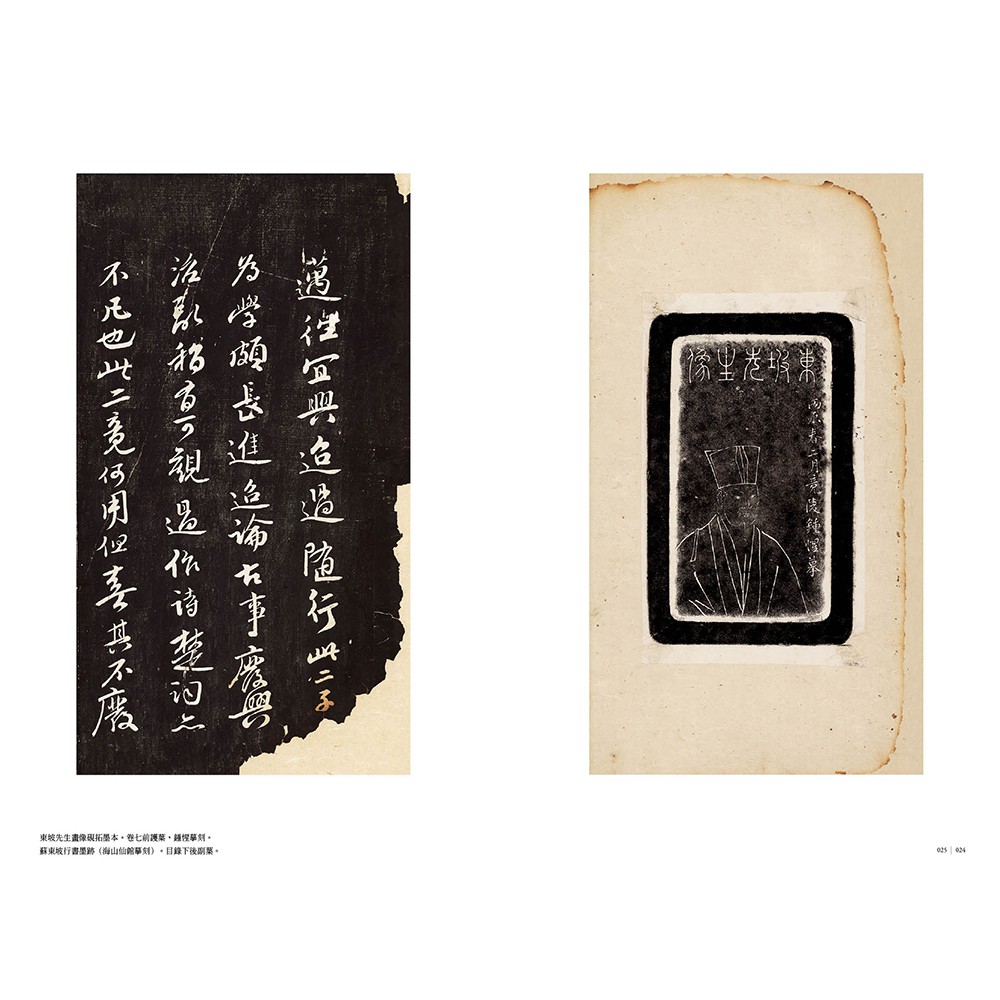 東坡先生像
丙辰春二月竟陵鍾惺摹
邁往宜興迨過隨行此二子
為學頗長進迨論古事廢興
治亂稍有可觀過作詩楚詞亦
不凡也此二竟何用但喜其不廢
東坡先生畫像硯拓墨本。卷七前護葉，鍾惺摹刻。
蘇東坡行書墨跡（海山仙館摹刻）。目錄下後副葉。
025 | 024